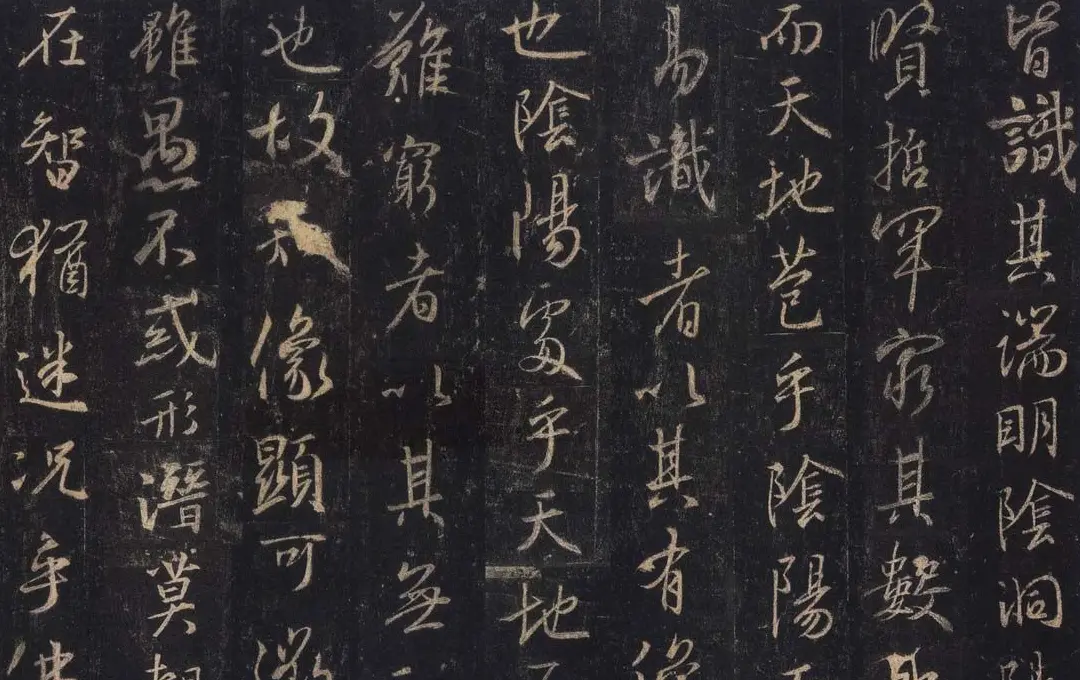 皆識其端明陰洞陽
賢哲罕窮其數
而天地苞乎陰陽而
易識者以其有像
也陰陽處乎天地而
難窮者以其無
也故知像顯可徵
雖愚不惑形潛莫覩
在智猶迷況乎佛